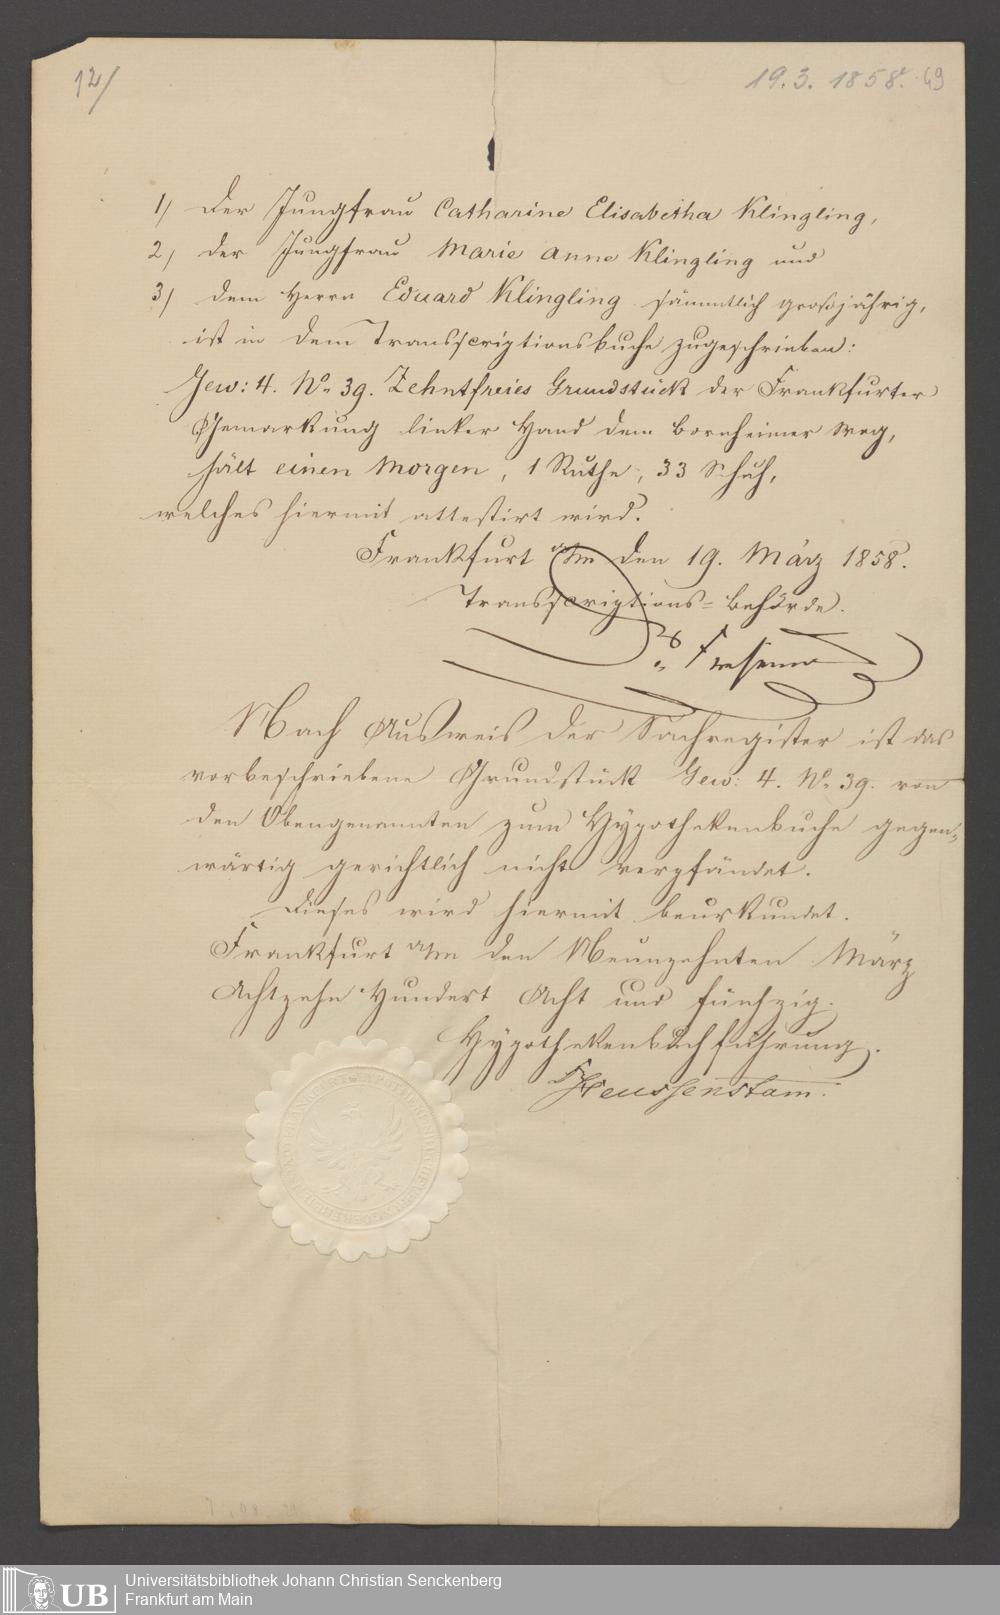 12/
19. 3. 1858. 49
1/ Der Jungfrau Catharine Elisabetha Klingling,
2/ der Jungfrau Marie Anne Klingling und
3/ dem Herrn Eduard Klingling sämmtlich großjährig,
ist in dem Transscriptionsbuche zugeschrieben:
Gew: 4. No. 39. Zehntfreies Grundstück der Frankfurter
Gemarkung linker Hand dem Bornheimer Weg,
hält einen Morgen, 1 Ruthe, 33 Schuh,
welches hiermit attestirt wird.
Frankfurt a/m den 19. März 1858.
Transscriptions-Behörde.
Nach Ausweis der Sachregister ist das
vorbeschriebene Grundstück Gew: 4. No. 39. von
den Obengenannten zum Hypothekenbuche gegen-
wärtig gerichtlich nicht verpfändet.
Dieses wird hiermit beurkundet.
Frankfurt a/m den Neunzehnten März
Achtzehn Hundert Acht und fünfzig.
Hypothekenbuchführung.
Heussenstam.
UB
Universitätsbibliothek Johann Christian Senckenberg
Frankfurt am Main